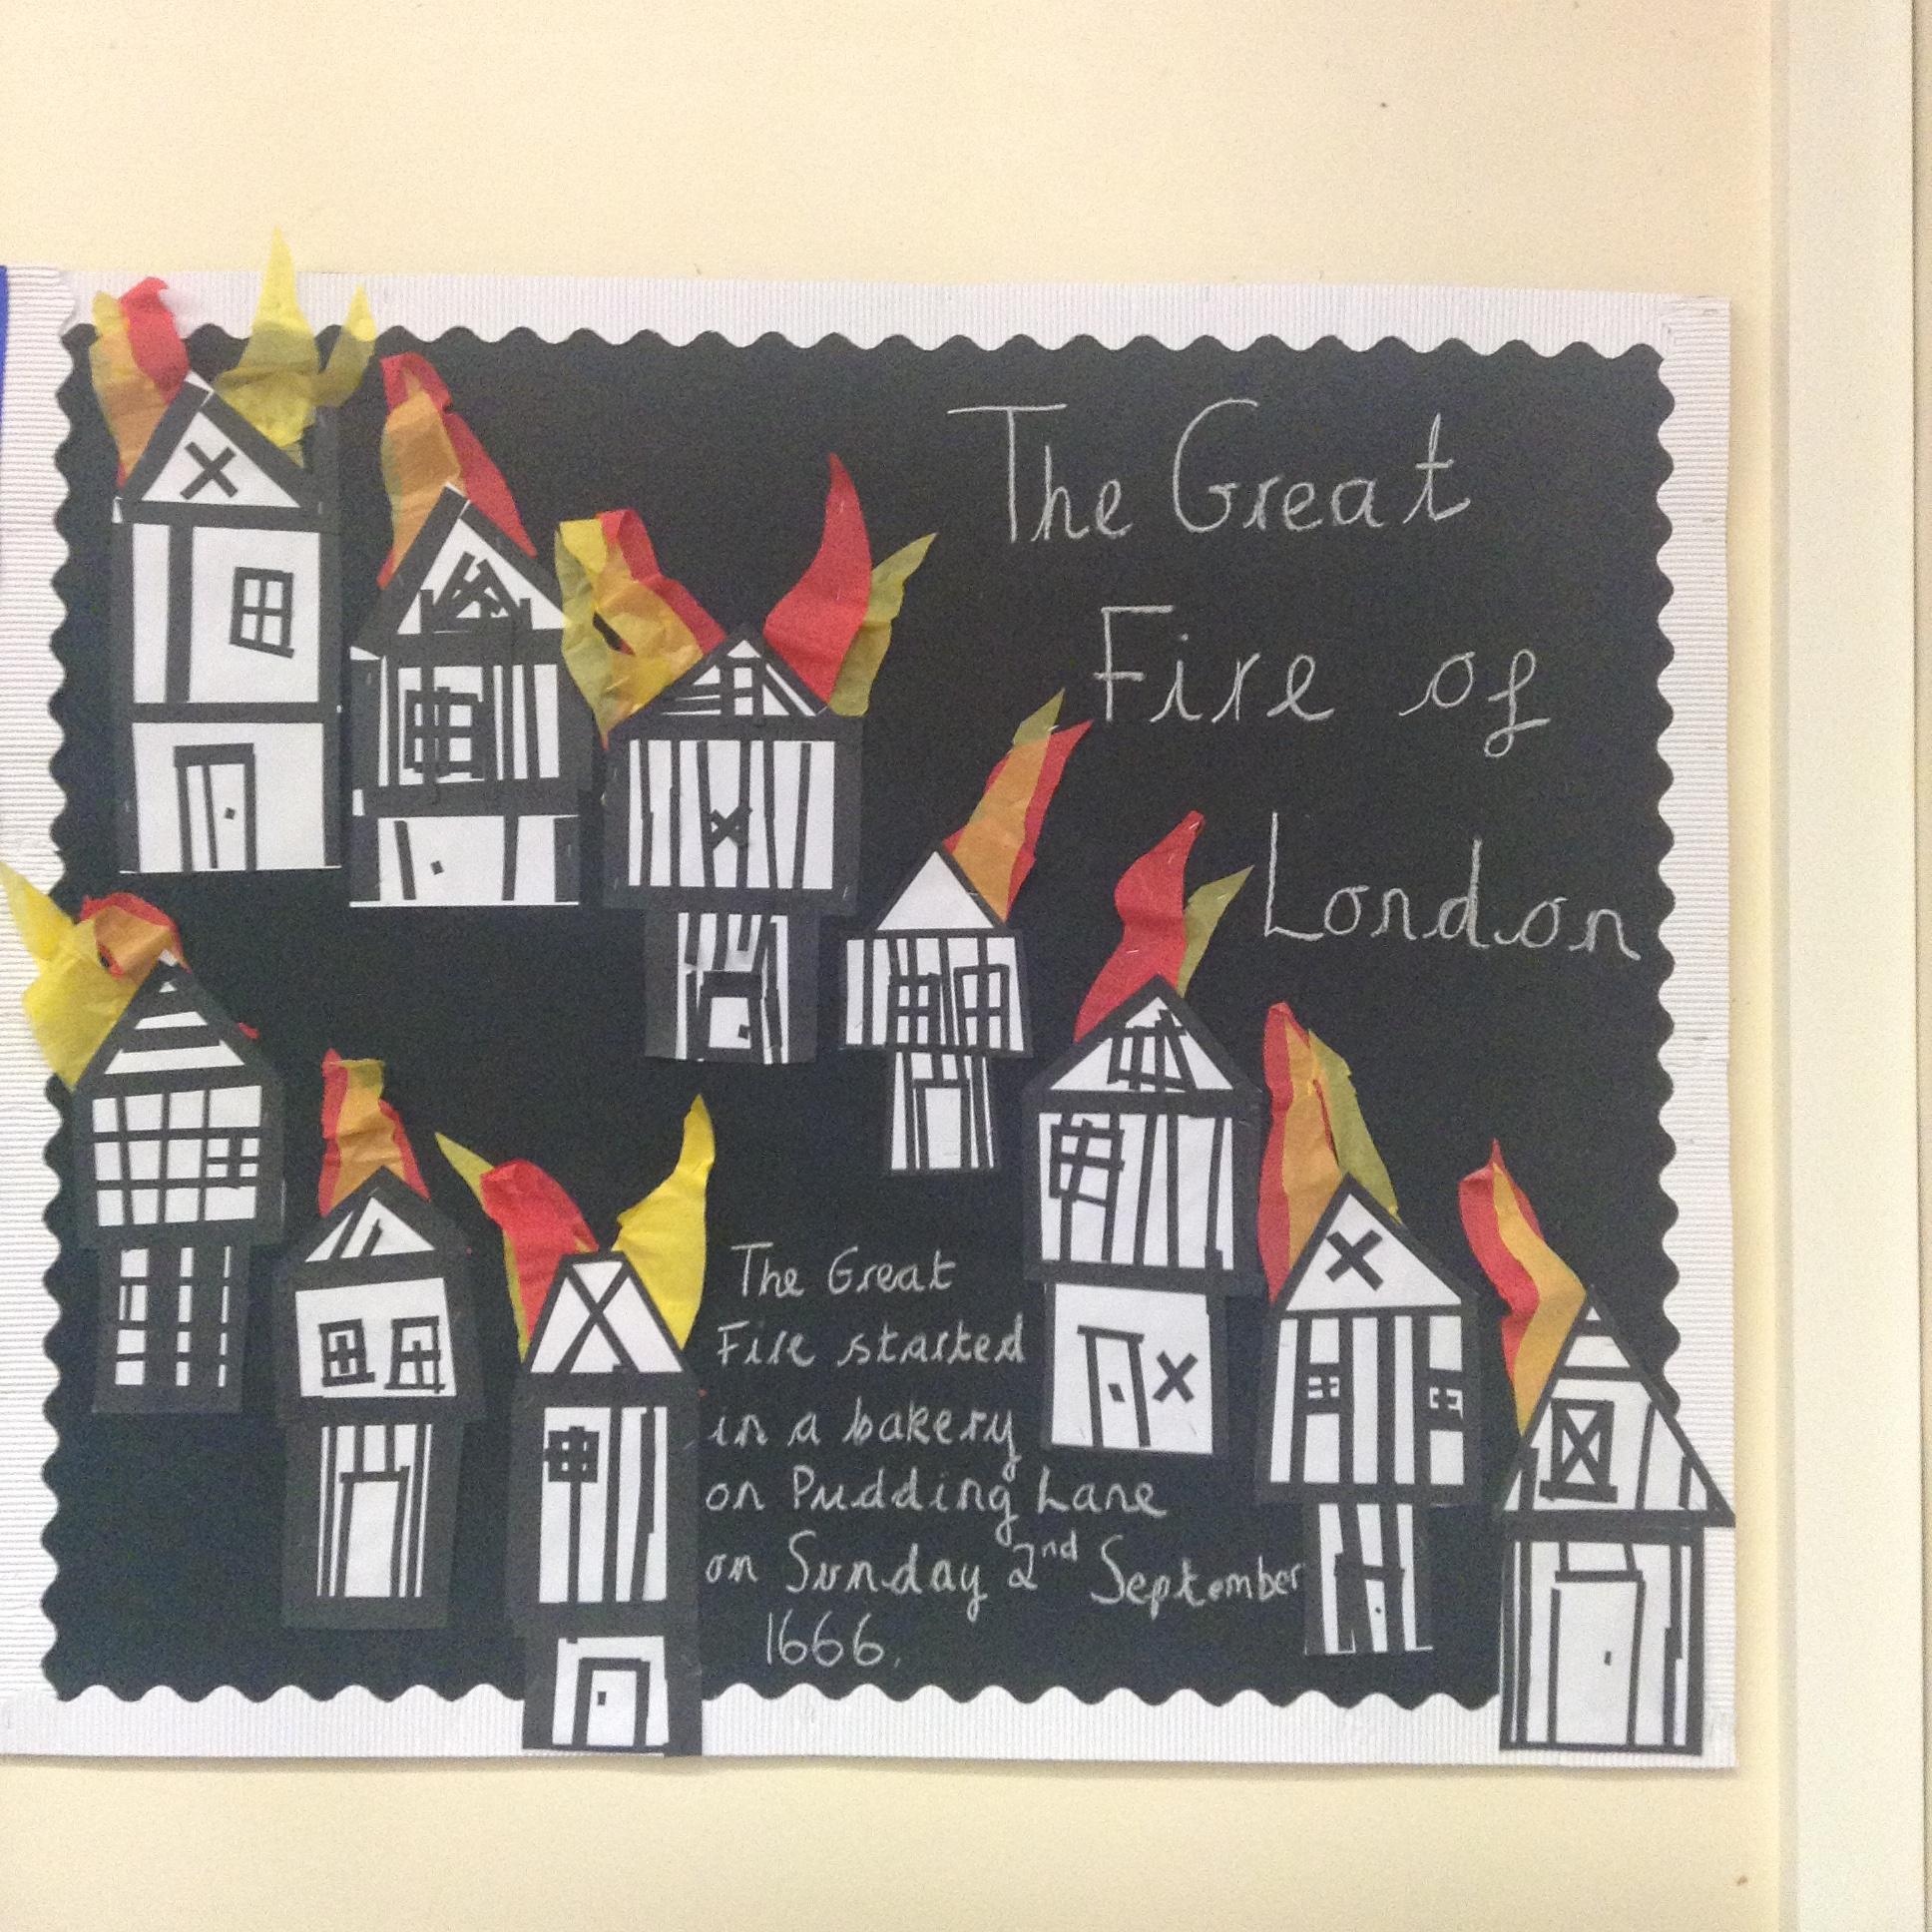 The Great
Fire of
London
The Great
Fire started
in a bakery
on Pudding Lane
on Sunday 2nd September
1666.